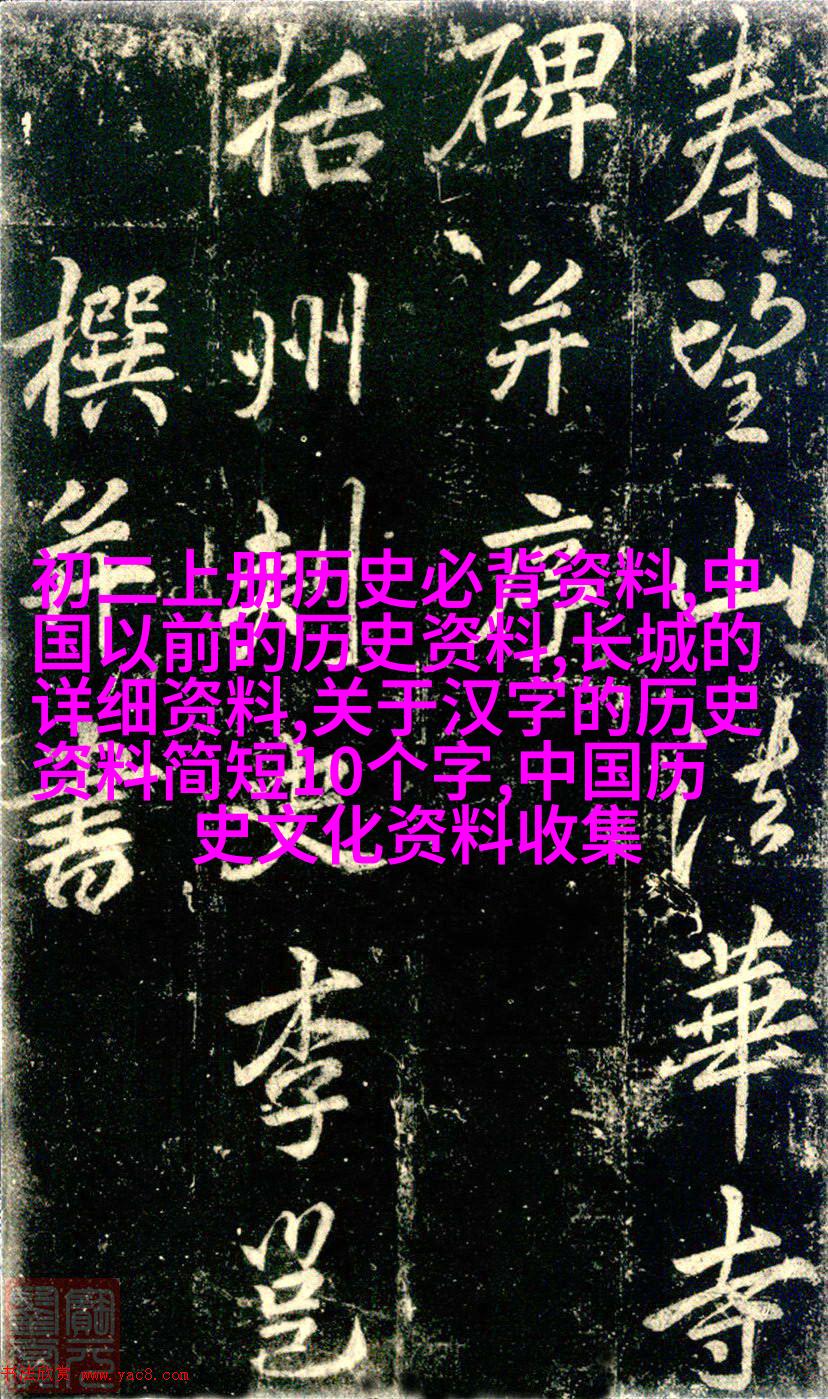 秦望山法華寺
碑并序
括州刺史李邕
撰并書
初二上册历史必背资料,中
国以前的历史资料,长城的
详细资料,关于汉字的历史
资料简短10个字,中国历
史文化资料收集
书法欣赏 www.yac8.com